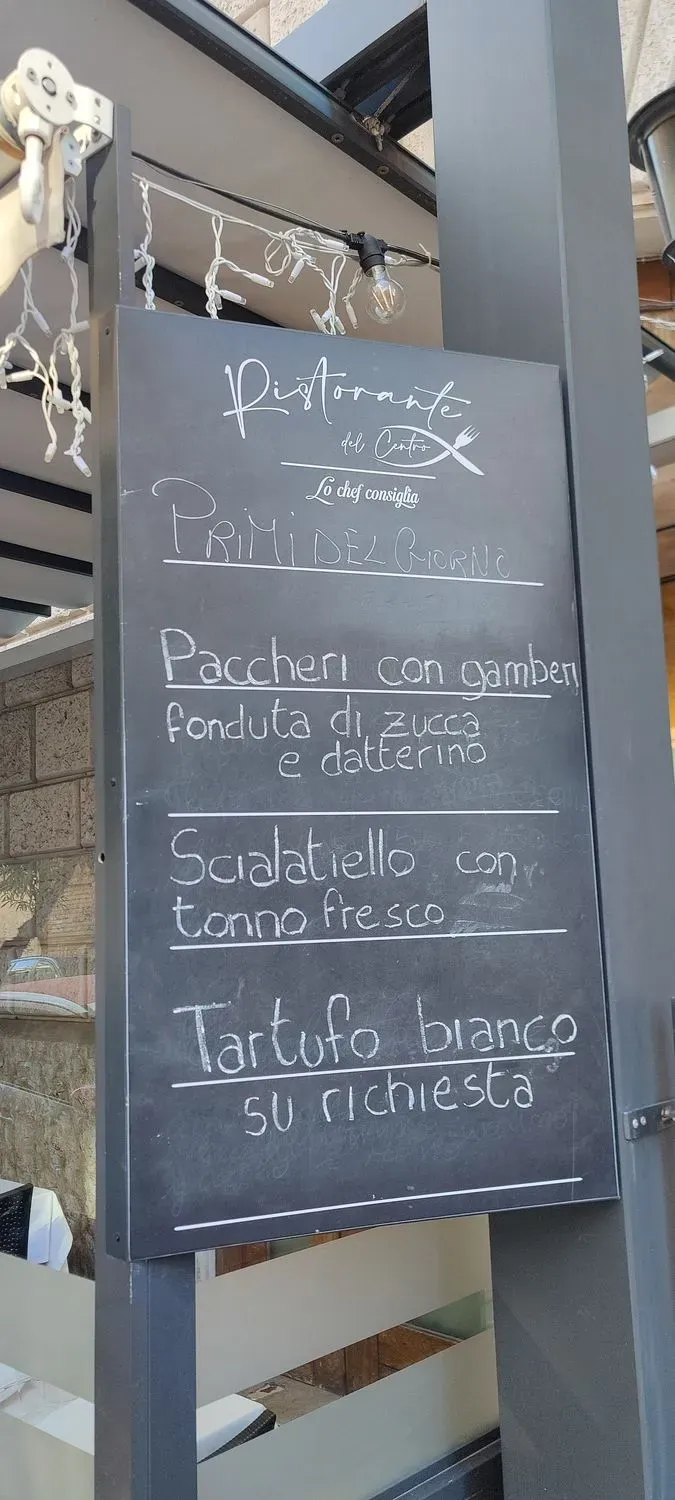 Ristorante
del Centro
Lo chef consiglia
PRIMI DEL GIORNO
Paccheri con gamberi
fonduta di zucca
e datterino
Scialatiello con
tonno fresco
Tartufo bianco
su richiesta